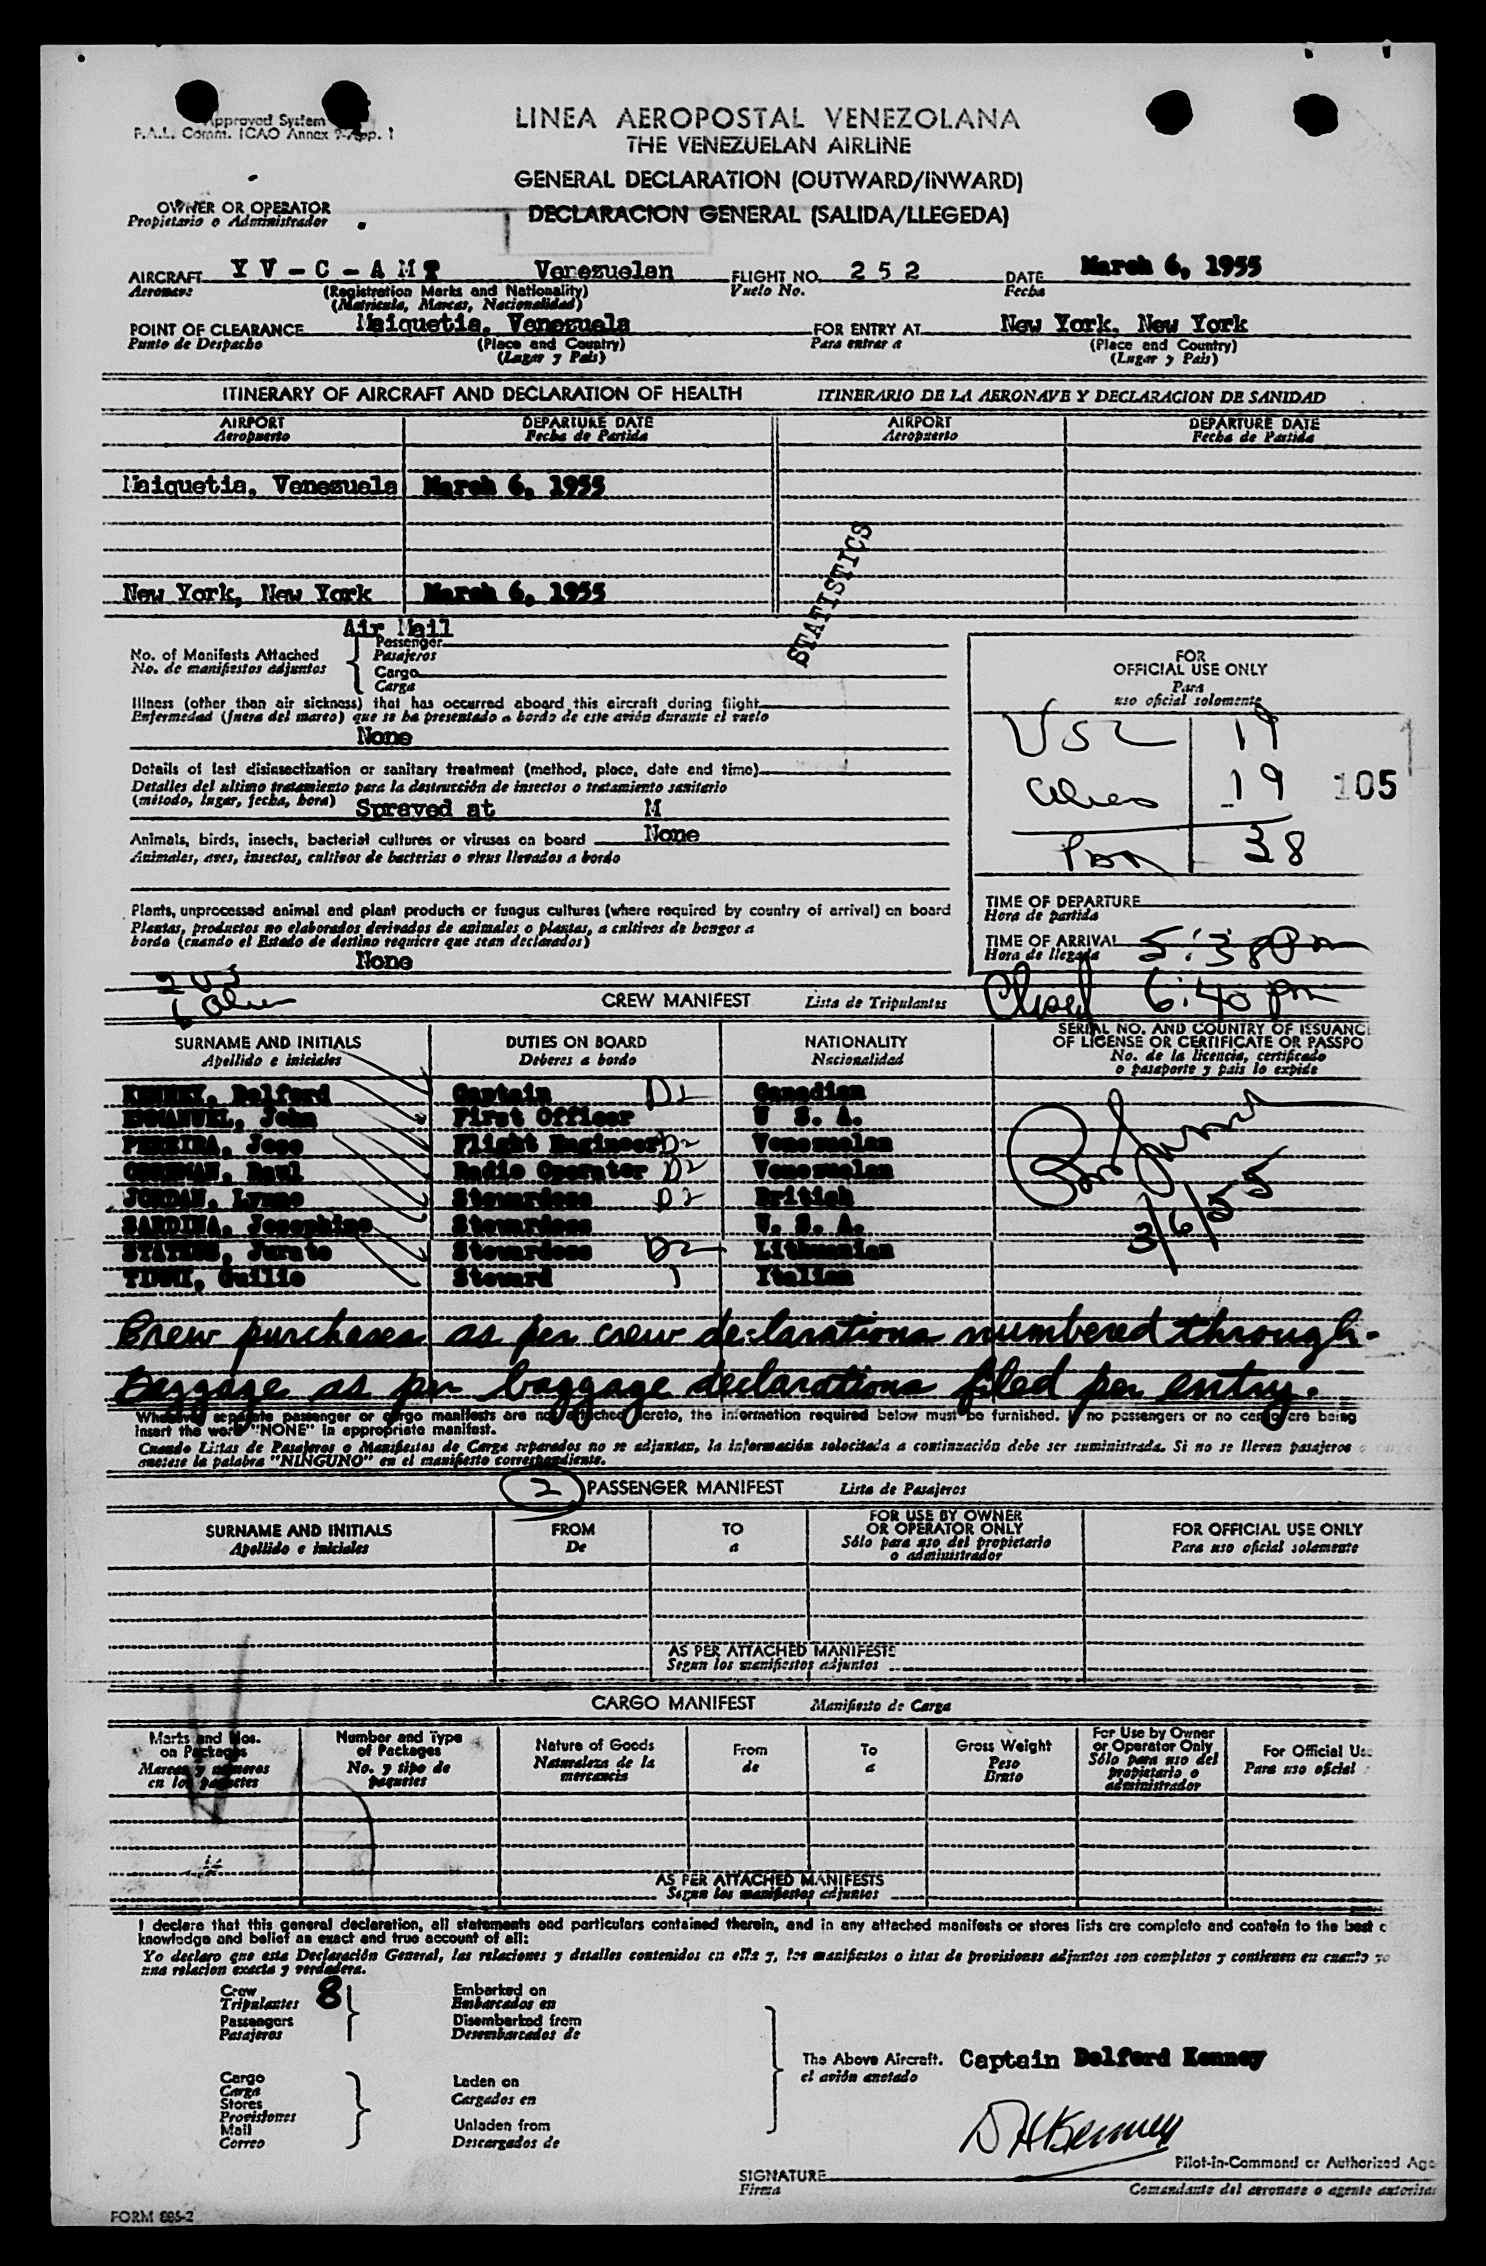 Approved System
F.A.L. Comm. ICAO Annex 9-App. 1
LINEA AEROPOSTAL VENEZOLANA
THE VENEZUELAN AIRLINE
GENERAL DECLARATION (OUTWARD/INWARD)
DECLARACION GENERAL (SALIDA/LLEGEDA)
OWNER OR OPERATOR
Propietario o Administrador
AIRCRAFT Y V - C - A M Venezuelan FLIGHT NO. 2 5 2 DATE March 6, 1955
Aeronave (Registration Marks and Nationality) Vuelo No. Fecha
(Matricula, Marcas, Nacionalidad)
POINT OF CLEARANCE Maiquetia, Venezuela FOR ENTRY AT New York, New York
Punto de Despacho (Place and Country) Para entrar a (Place and Country)
(Lugar y Pais) (Lugar y Pais)
ITINERARY OF AIRCRAFT AND DECLARATION OF HEALTH ITINERARIO DE LA AERONAVE Y DECLARACION DE SANIDAD
AIRPORT DEPARTURE DATE AIRPORT DEPARTURE DATE
Aeropuerto Fecha de Partida Aeropuerto Fecha de Partida
Maiquetia, Venezuela March 6, 1955
STATISTICS
New York, New York March 6, 1955
Air Mail
No. of Manifests Attached Passenger
No. de manifiestos adjuntos Pasajeros
Cargo
Carga
Illness (other than air sickness) that has occurred aboard this aircraft during flight
Enfermedad (fuera del mareo) que se ha presentado a bordo de este avión durante el vuelo
None
Details of last disinsectization or sanitary treatment (method, place, date and time)
Detalles del ultimo tratamiento para la destrucción de insectos o tratamiento sanitario
(método, lugar, fecha, hora) Sprayed at M
Animals, birds, insects, bacterial cultures or viruses on board None
Animales, aves, insectos, cultivos de bacterias o virus llevados a bordo
Plants, unprocessed animal and plant products or fungus cultures (where required by country of arrival) on board
Plantas, productos no elaborados derivados de animales o plantas, a cultivos de hongos a
bordo (cuando el Estado de destino requiere que sean declarados)
None
FOR
OFFICIAL USE ONLY
Para
uso oficial solomente
USC 19
Aliens 19 105
38
TIME OF DEPARTURE
Hora de partida
TIME OF ARRIVAL 5:38 Pm
Hora de llegada
Closed 6:40 pm
2 US
6 Alien
CREW MANIFEST Lista de Tripulantes
SURNAME AND INITIALS DUTIES ON BOARD NATIONALITY SERIAL NO. AND COUNTRY OF ISSUANC
Apellido e iniciales Deberes a bordo Nacionalidad OF LICENSE OR CERTIFICATE OR PASSPO
No. de la licencia, certificado
o pasaporte y pais lo expide
KENNEY, Delford Captain D2 Canadian
EMMANUEL, John First Officer U S. A.
PEREIRA, Jose Flight Engineer D2 Venezuelan
Raul Radio Operator D2 Venezuelan
JORDAN, Lynne Stewardess D2 British
SARDINA, Josephine Stewardess U. S. A.
Jurate Stewardess D2 Lithuanian
Guilio Steward 1 Italian
3/6/55
Crew purchases as per crew declarations numbered through.
Baggage as per baggage declarations filed per entry.
Whenever separate passenger or cargo manifests are not attached hereto, the information required below must be furnished. If no passengers or no cargo are being
insert the word "NONE" in appropriate manifest.
Cuando Listas de Pasajeros o Manifiestos de Carga separados no se adjuntan, la información solocitada a continuación debe ser suministrada. Si no se lleven pasajeros o
anotese la palabra "NINGUNO" en el manifiesto correspondiente.
2 PASSENGER MANIFEST Lista de Pasajeros
SURNAME AND INITIALS FROM TO FOR USE BY OWNER FOR OFFICIAL USE ONLY
Apellido e iniciales De a OR OPERATOR ONLY Para uso oficial solamente
Sólo para uso del propietario
o administrador
AS PER ATTACHED MANIFESTS
Segun los manifiestos adjuntos
CARGO MANIFEST Manifiesto de Carga
Marks and Nos. on Packages Number and Type of Packages Nature of Goods From To Gross Weight For Use by Owner or Operator Only For Official Use
Marcas y números en los paquetes No. y tipo de paquetes Naturaleza de la mercancia de a Peso Bruto Sólo para uso del propietario o administrador Para uso oficial
AS PER ATTACHED MANIFESTS
Segun los manifiestos adjuntos
I declare that this general declaration, all statements and particulars contained therein, and in any attached manifests or stores lists are complete and contain to the best o
knowledge and belief an exact and true account of all:
Yo declaro que esta Declaración General, las relaciones y detalles contenidos en ella y, los manifiestos o istas de provisiones adjuntos son completos y contienen en cuanto yo
una relacion exacta y verdadera.
Crew 8 Embarked on
Tripulantes Embarcados en
Passengers Disembarked from
Pasajeros Desembarcados de
The Above Aircraft. Captain Delford Kenney
el avión anotado
Cargo Laden on
Carga Cargados en
Stores
Provisiones
Mail Unladen from
Correo Descargados de
D H Kenney
Pilot-in-Command or Authorized Age
SIGNATURE
Firma Comandante del aeronave o agente autorisa
FORM 885-2